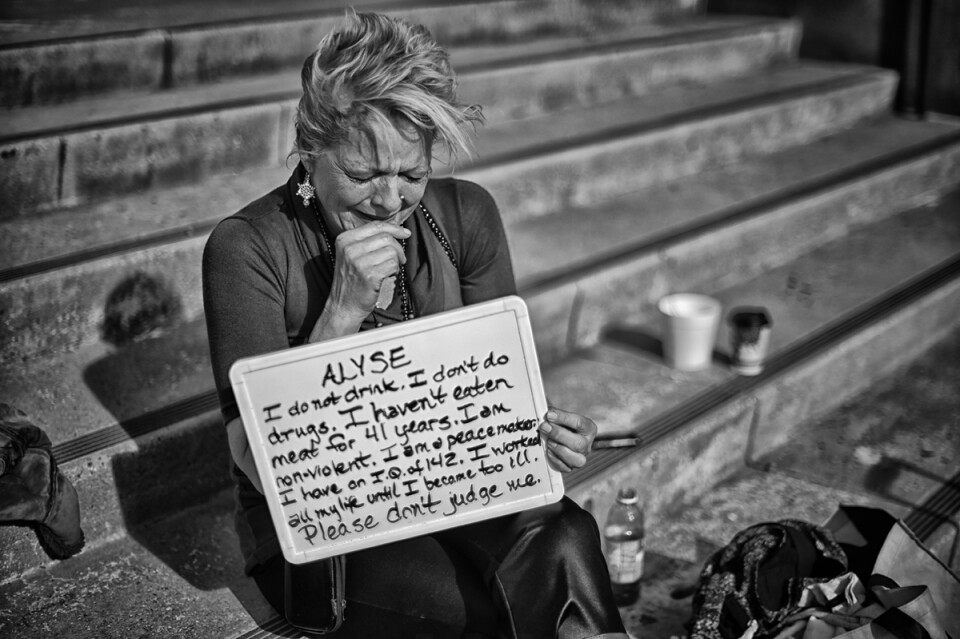 ALYSE
I do not drink. I don't do
drugs. I haven't eaten
meat for 41 years. I am
non-violent. I am a peacemaker.
I have an I.Q. of 142. I worked
all my life until I became too ill.
Please don't judge me.